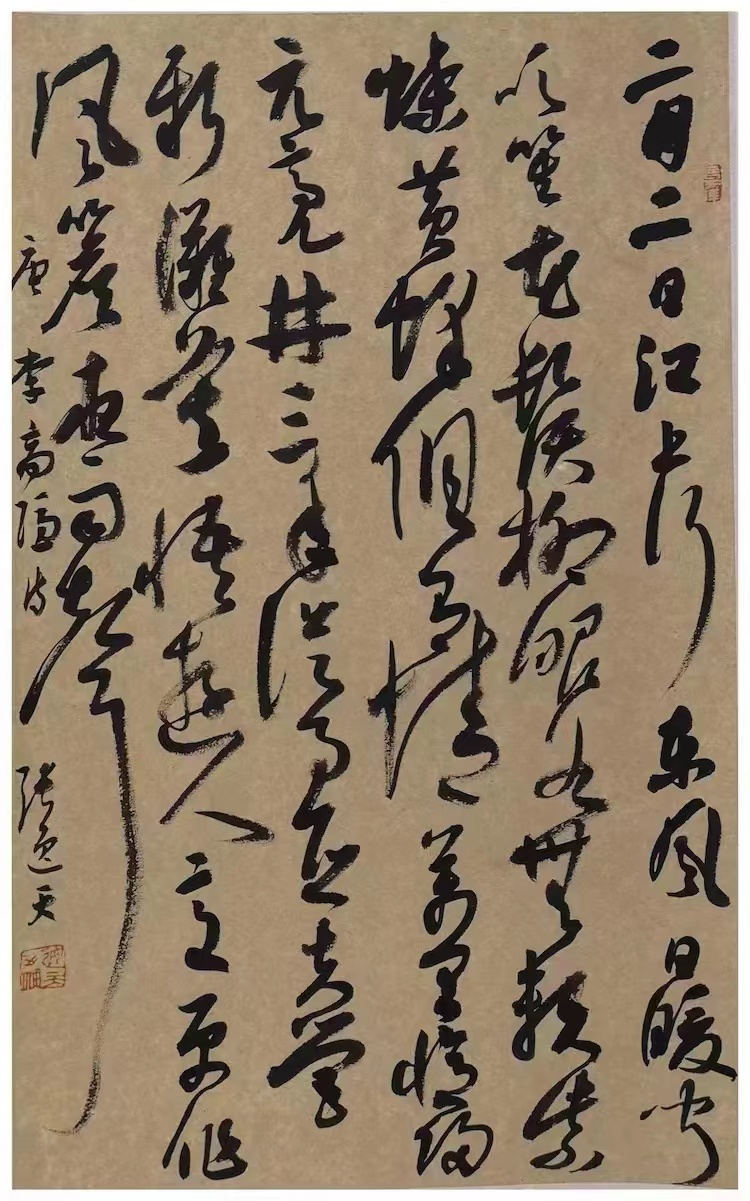 二月二日江上行东风日暖闻
吹笙花鬚柳眼各無赖紫
蝶黄蜂俱有情萬里憶归
元亮井三年從事亚夫营
新灘莫悟遊人意更作
风簷夜雨聲
唐李商隐诗